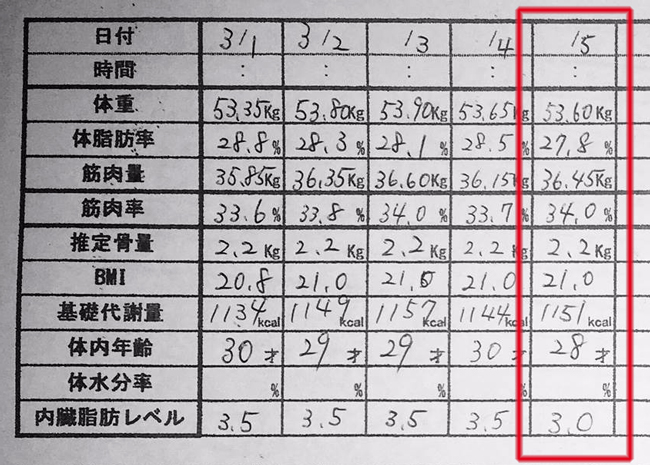 日付 3/1 3/2 /3 /4 /5
時間 : : : : :
体重 53.35Kg 53.80Kg 53.90Kg 53.65Kg 53.60Kg
体脂肪率 28.8% 28.3% 28.1% 28.5% 27.8%
筋肉量 35.85Kg 36.35Kg 36.60Kg 36.15Kg 36.45Kg
筋肉率 33.6% 33.8% 34.0% 33.7% 34.0%
推定骨量 2.2Kg 2.2Kg 2.2Kg 2.2Kg 2.2Kg
BMI 20.8 21.0 21.0 21.0 21.0
基礎代謝量 1134kcal 1149kcal 1157kcal 1144kcal 1151kcal
体内年齢 30才 29才 29才 30才 28才
体水分率 % % % % %
内臓脂肪レベル 3.5 3.5 3.5 3.5 3.0